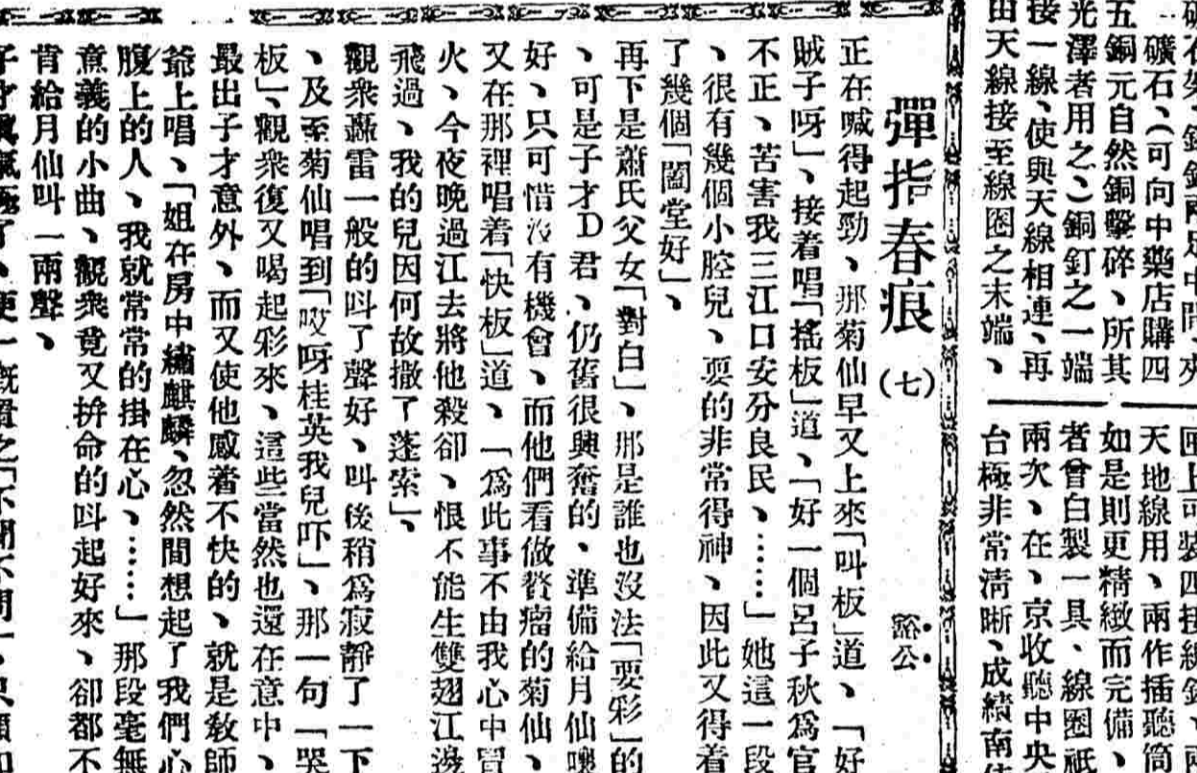 礦石、(可向中藥店購四
五銅元自然銅擊碎、所其
光澤者用之、)銅釘之一端
接一線、使與天線相連、再
由天線接至線圈之末端、
天地線用、兩作插聽筒
如是則更精緻而完備、
者曾自製一具、線圈祇
兩次、在、京收聽中央
台極非常清晰、成績南
彈指春痕(七)
豁公
正在喊得起勁、那菊仙早又上來「叫板」道、「好
賊子呀」、接着唱「搖板」道、「好一個呂子秋爲官
不正、苦害我三江口安分良民、……」她這一段
、很有幾個小腔兒、耍的非常得神、因此又得着
了幾個「闔堂好」、
再下是蕭氏父女「對白」、那是誰也沒法「要彩」的
、可是子才D君、仍舊很興奮的、準備給月仙嚷
好、只可惜沒有機會、而他們看做贅瘤的菊仙、
又在那裡唱着「快板」道、「爲此事不由我心中冒
火、今夜晚過江去將他殺卻、恨不能生雙翅江邊
飛過、我的兒因何故撒了蓬索」、
觀衆轟雷一般的叫了聲好、叫後稍爲寂靜了一下
、及至菊仙唱到「哎呀桂英我兒吓」、那一句「哭
板」、觀衆復又喝起彩來、這些當然也還在意中、
最出子才意外、而又使他感着不快的、就是教師
爺上唱、「姐在房中繡麒麟、忽然間想起了我們心
腹上的人、我就常常的掛在心、……」那段毫無
意義的小曲、觀衆竟又拚命的叫起好來、卻都不
肯給月仙叫一兩聲、